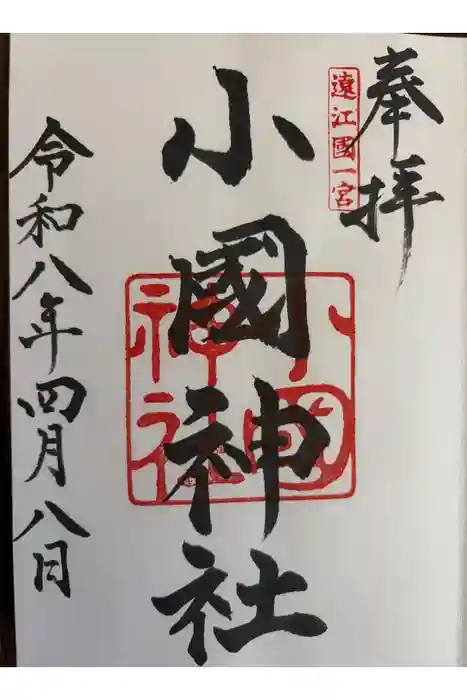 奉拝
遠江國一宮
小國神社
小國神社
令和八年四月八日